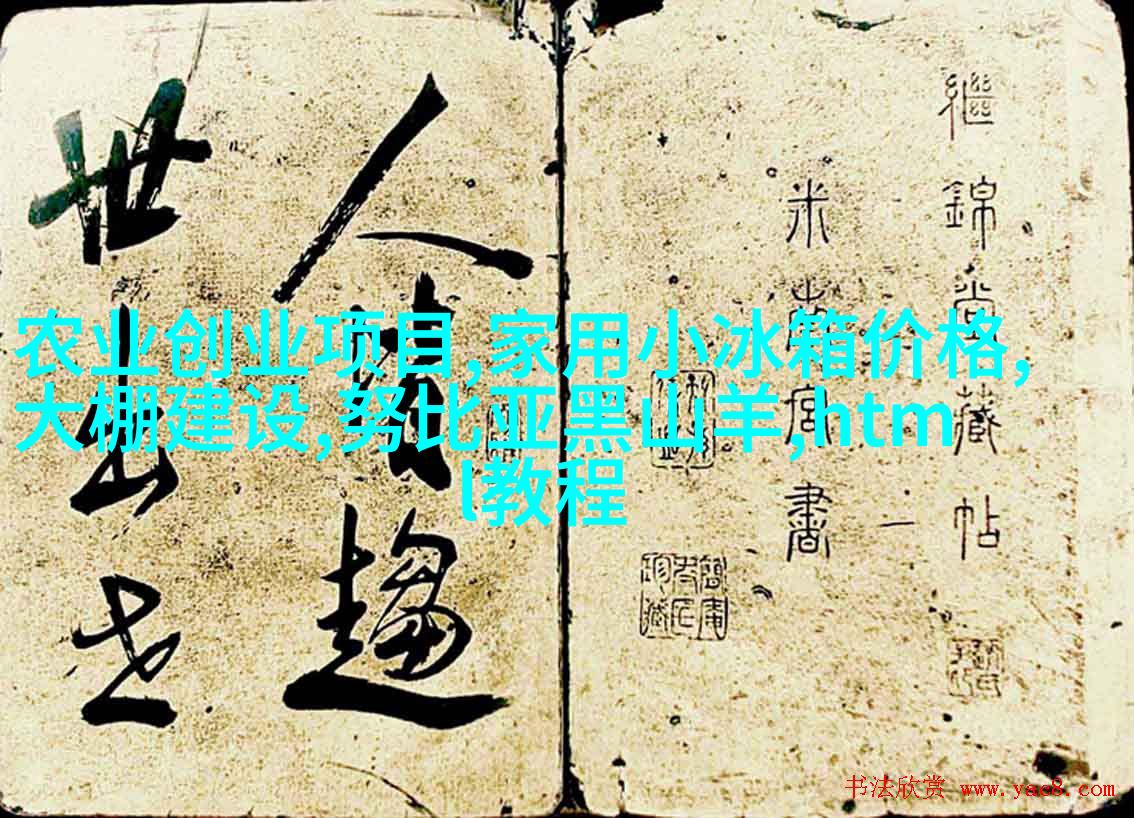 繼錦堂藏帖
米南宮書
人趨
世出
农业创业项目,家用小冰箱价格,
大棚建设,努比亚黑山羊,htm
l教程
书法欣赏 www.yac8.com